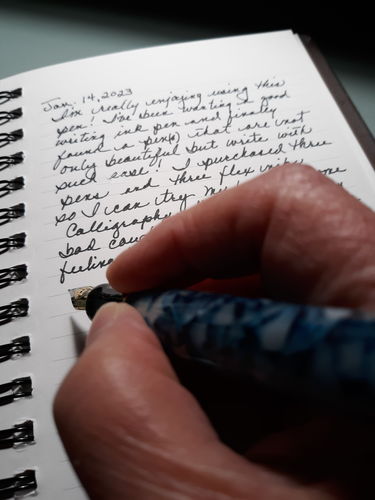 Jan. 14, 2023
I'm really enjoying using this
pen! I've been wanting a good
writing ink pen and finally
found a pen(s) that are not
only beautiful but write with
such ease! I purchased three
pens and three flex nibs
so I can try my
Calligraphy
bad
feeling